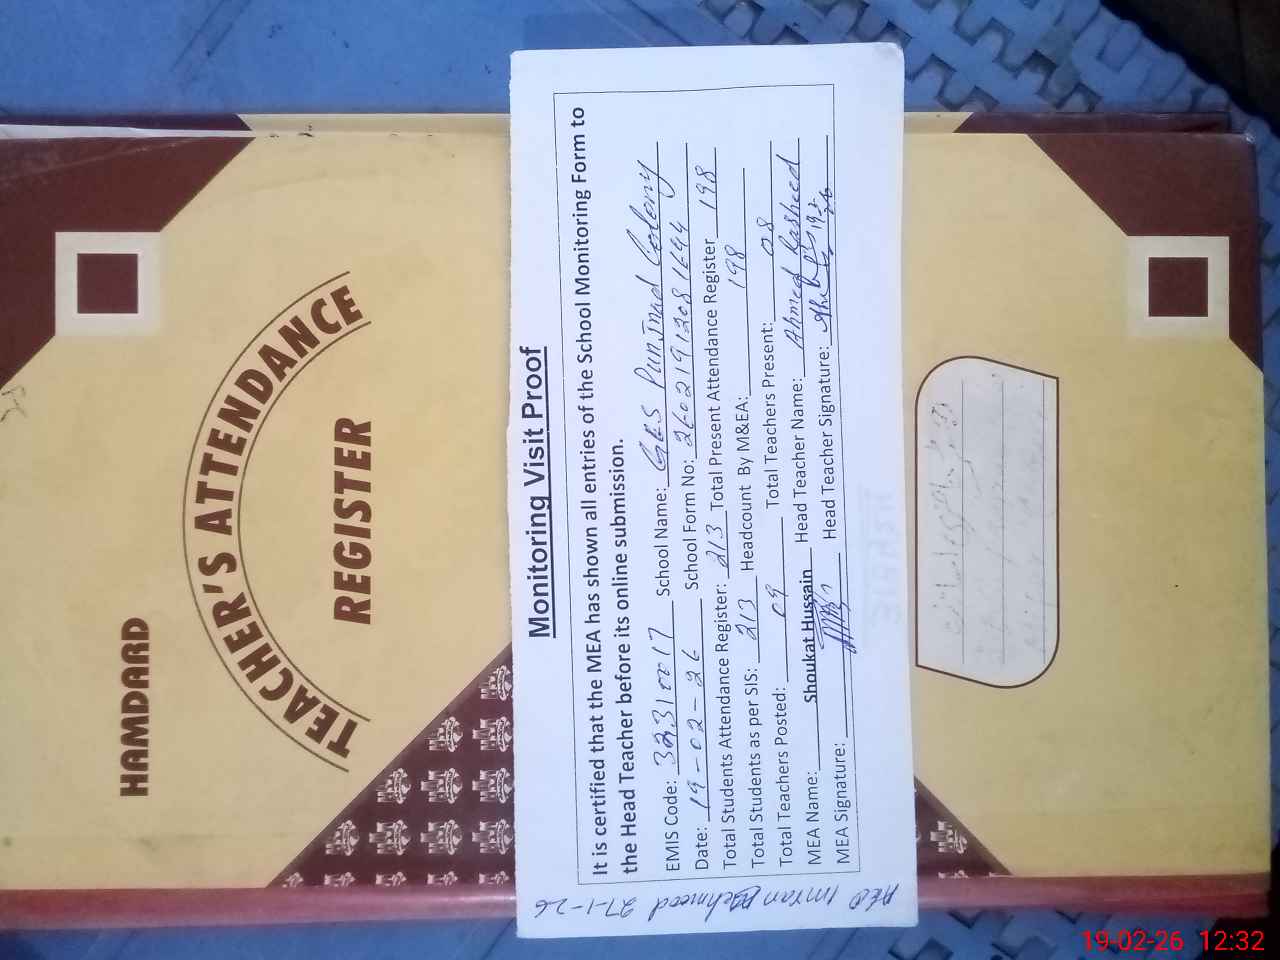 HAMDARD
TEACHER'S ATTENDANCE
REGISTER
Monitoring Visit Proof
It is certified that the MEA has shown all entries of the School Monitoring Form to
the Head Teacher before its online submission.
EMIS Code: 32310017 School Name: GES Punjnad Colony
Date: 19-02-26 School Form No: 26021912081644
Total Students Attendance Register: 213 Total Present Attendance Register 198
Total Students as per SIS: 213 Headcount By M&EA: 198
Total Teachers Posted: 09 Total Teachers Present: 08
MEA Name: Shoukat Hussain Head Teacher Name: Ahmed Rasheed
MEA Signature: Head Teacher Signature:
AEO Imran Mehmood 27-1-26
19-02-26 12:32